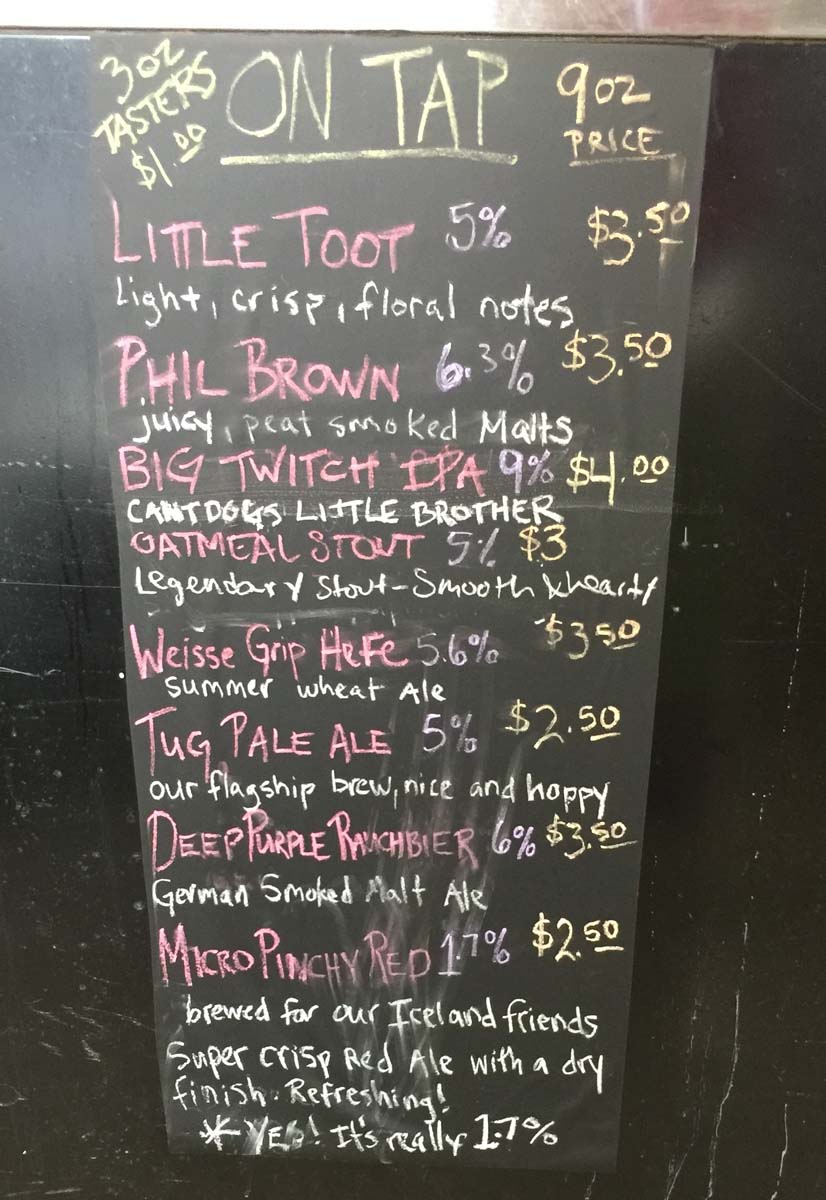 3oz TASTERS $1.00
ON TAP
9oz PRICE
LITTLE TOOT 5% $3.50
Light, crisp, floral notes
PHIL BROWN 6.3% $3.50
juicy, peat smoked Malts
BIG TWITCH IPA 9% $4.00
CANTDOGS LITTLE BROTHER
OATMEAL STOUT 5% $3
Legendary Stout-Smooth & hearty
Weisse Grip HeFe 5.6% $3.50
summer wheat Ale
TUG PALE ALE 5% $2.50
our flagship brew, nice and hoppy
DEEP PURPLE RAUCHBIER 6% $3.50
German Smoked Malt Ale
MICRO PINCHY RED 1.7% $2.50
brewed for our Iceland friends
Super crisp Red Ale with a dry
finish. Refreshing!
* YES! It's really 1.7%